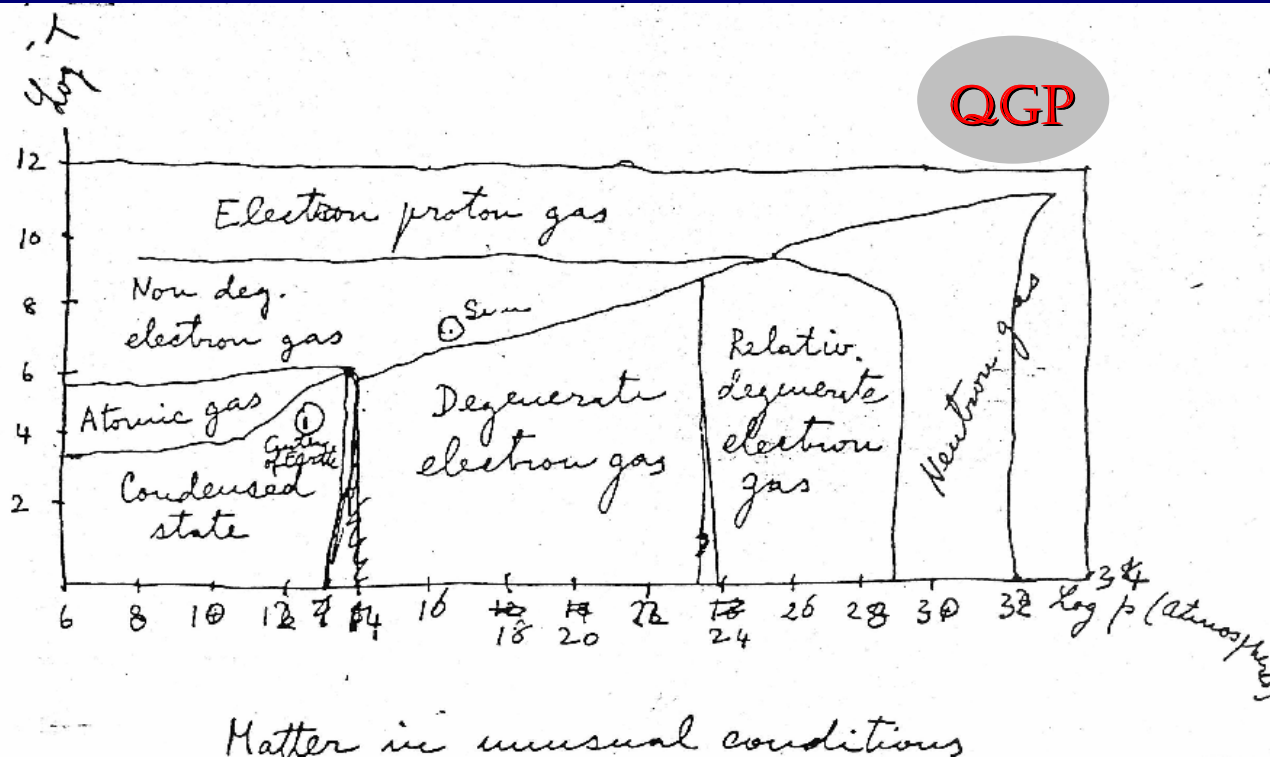 Log T
QGP
12
10
8
6
4
2
Electron proton gas
Non deg.
electron gas
Sun
Atomic gas
Center
of Earth
Condensed
state
Degenerate
electron gas
Relativ.
degenerate
electron
gas
Neutron gas
6 8 10 12 14 16 18 20 22 24 26 28 30 32 34
Log p (Atmospheres)
Matter in unusual conditions